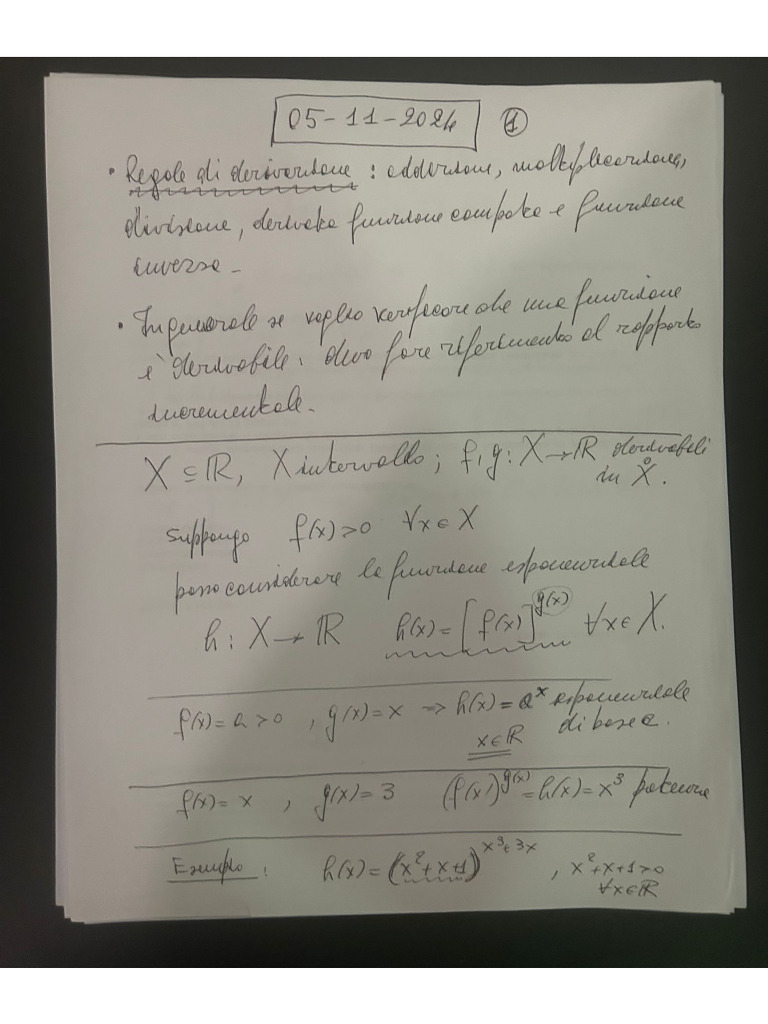 05-11-2024 ①
• Regole di derivazione : addizione, moltiplicazione,
divisione, derivata funzione composta e funzione
inversa -
• In generale se voglio verificare che una funzione
è derivabile : devo fare riferimento al rapporto
incrementale.
X ⊆ ℝ, X intervallo ; f, g : X → ℝ derivabili
in X̊.
Suppongo f(x) > 0 ∀x ∈ X
posso considerare la funzione esponenziale
h : X → ℝ h(x) = [f(x)]^{g(x)} ∀x ∈ X.
f(x) = a > 0 , g(x) = x ⇒ h(x) = a^x esponenziale
x ∈ ℝ di base a.
f(x) = x , g(x) = 3 (f(x))^{g(x)} = h(x) = x^3 potenza
Esempio : h(x) = (x^2 + x + 1)^{x^3 + 3x} , x^2 + x + 1 > 0
∀x ∈ ℝ